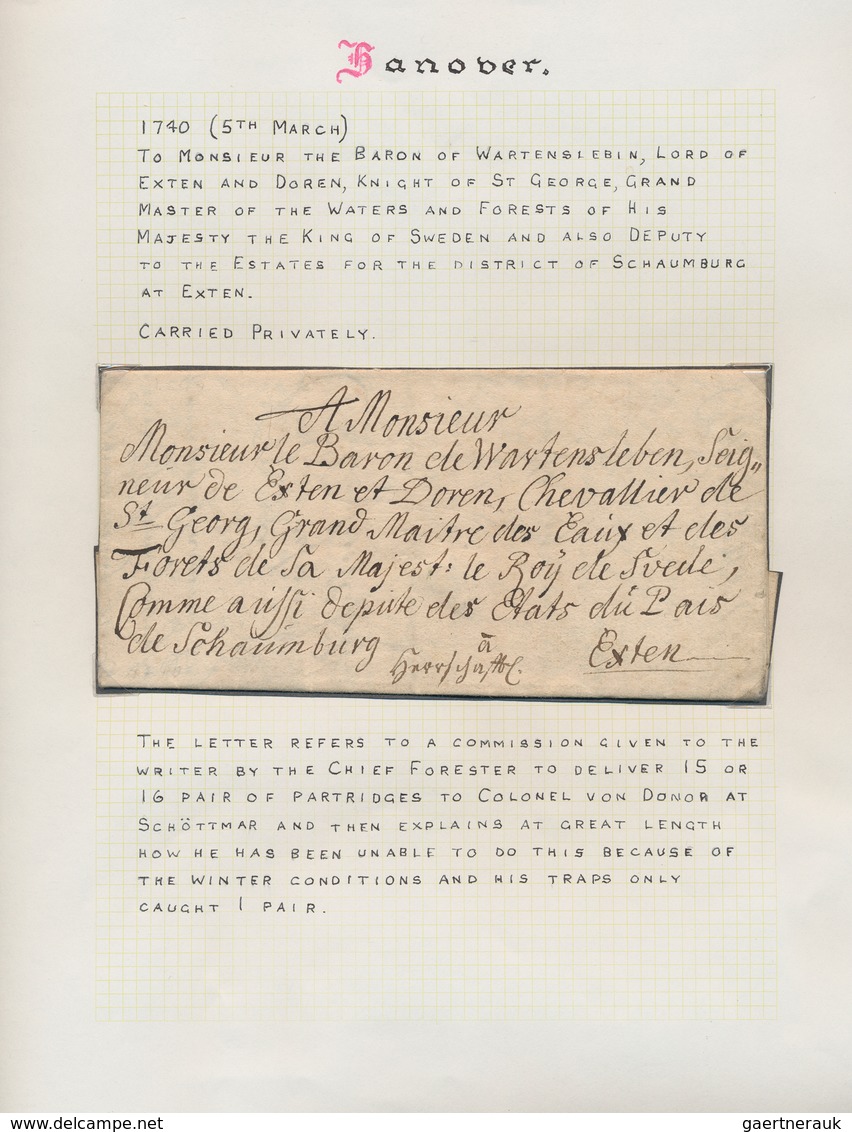 Hanover.
1740 (5TH MARCH)
TO MONSIEUR THE BARON OF WARTENSLEBIN, LORD OF
EXTEN AND DOREN, KNIGHT OF ST GEORGE, GRAND
MASTER OF THE WATERS AND FORESTS OF HIS
MAJESTY THE KING OF SWEDEN AND ALSO DEPUTY
TO THE ESTATES FOR THE DISTRICT OF SCHAUMBURG
AT EXTEN.
CARRIED PRIVATELY.
A Monsieur
Monsieur le Baron de Wartensleben, Seig„
neur de Exten et Doren, Chevallier de
St Georg, Grand Maitre des Eaux et des
Forets de Sa Majest: le Roÿ de Svede,
Comme aussi depute des Etats du Pais
de Schaumburg
à
Exten
THE LETTER REFERS TO A COMMISSION GIVEN TO THE
WRITER BY THE CHIEF FORESTER TO DELIVER 15 OR
16 PAIR OF PARTRIDGES TO COLONEL VON DONOR AT
SCHÖTTMAR AND THEN EXPLAINS AT GREAT LENGTH
HOW HE HAS BEEN UNABLE TO DO THIS BECAUSE OF
THE WINTER CONDITIONS AND HIS TRAPS ONLY
CAUGHT 1 PAIR.
delcampe.net
gaertnerauk